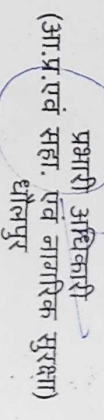 प्रभारी अधिकारी
(आ.प्र.एवं सहा. एवं नागरिक सुरक्षा)
धौलपुर